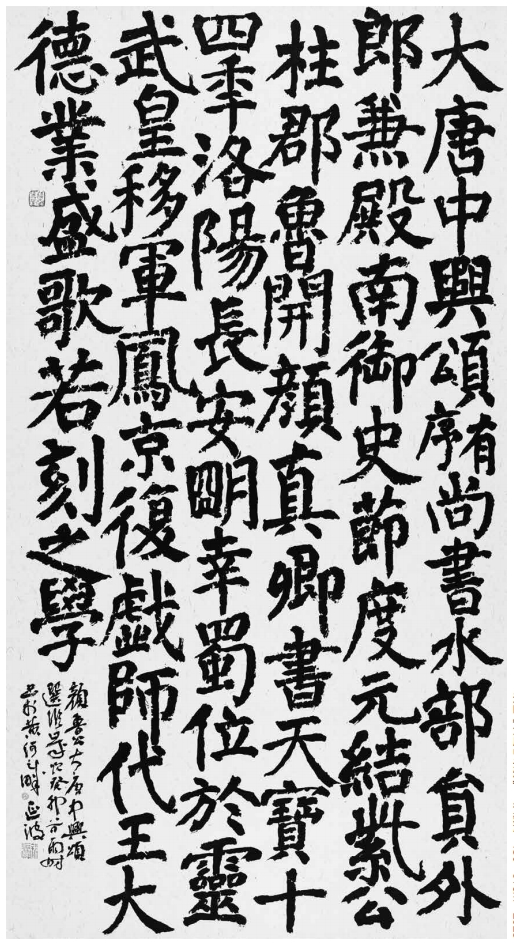 大唐中興頌有序尚書水部員外
郎兼殿南御史節度元結紫公
柱郡魯開顏真卿書天寶十
四年洛陽長安明幸蜀位於靈
武皇移軍鳳京復戲師代王大
德業盛歌若刻之學
顏魯公大唐中興頌
選臨癸卯
書於黃河之畔